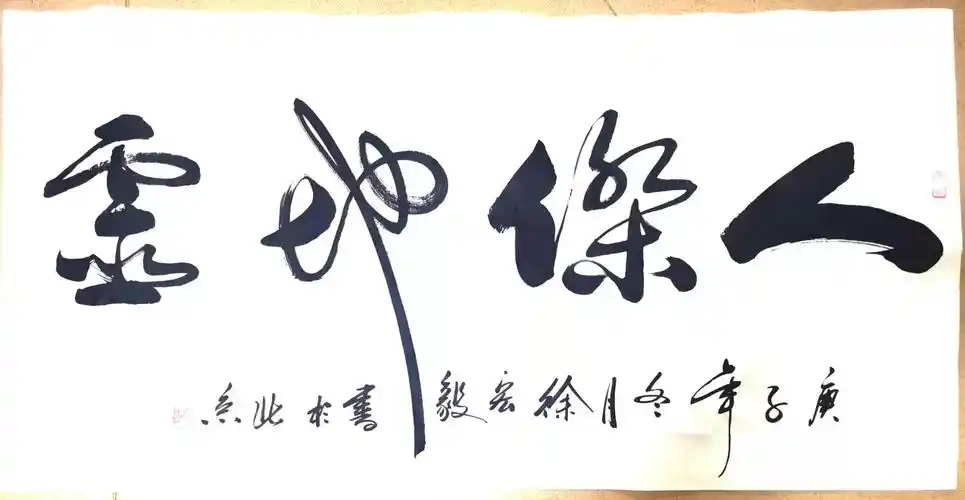 人傑地靈
庚子年冬月徐宏毅書於北京